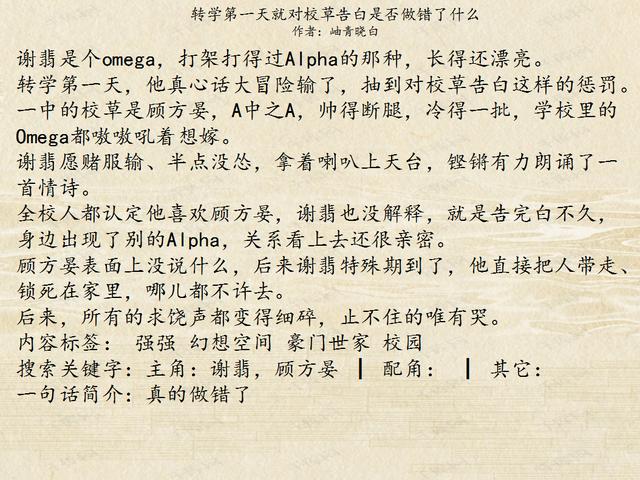 转学第一天就对校草告白是否做错了什么
作者：岫青晓白
谢翡是个omega，打架打得过Alpha的那种，长得还漂亮。
转学第一天，他真心话大冒险输了，抽到对校草告白这样的惩罚。
一中的校草是顾方晏，A中之A，帅得断腿，冷得一批，学校里的
Omega都嗷嗷吼着想嫁。
谢翡愿赌服输、半点没怂，拿着喇叭上天台，铿锵有力朗诵了一
首情诗。
全校人都认定他喜欢顾方晏，谢翡也没解释，就是告完白不久，
身边出现了别的Alpha，关系看上去还很亲密。
顾方晏表面上没说什么，后来谢翡特殊期到了，他直接把人带走、
锁死在家里，哪儿都不许去。
后来，所有的求饶声都变得细碎，止不住的唯有哭。
内容标签： 强强 幻想空间 豪门世家 校园
搜索关键字：主角：谢翡，顾方晏 ┃ 配角： ┃ 其它：
一句话简介：真的做错了